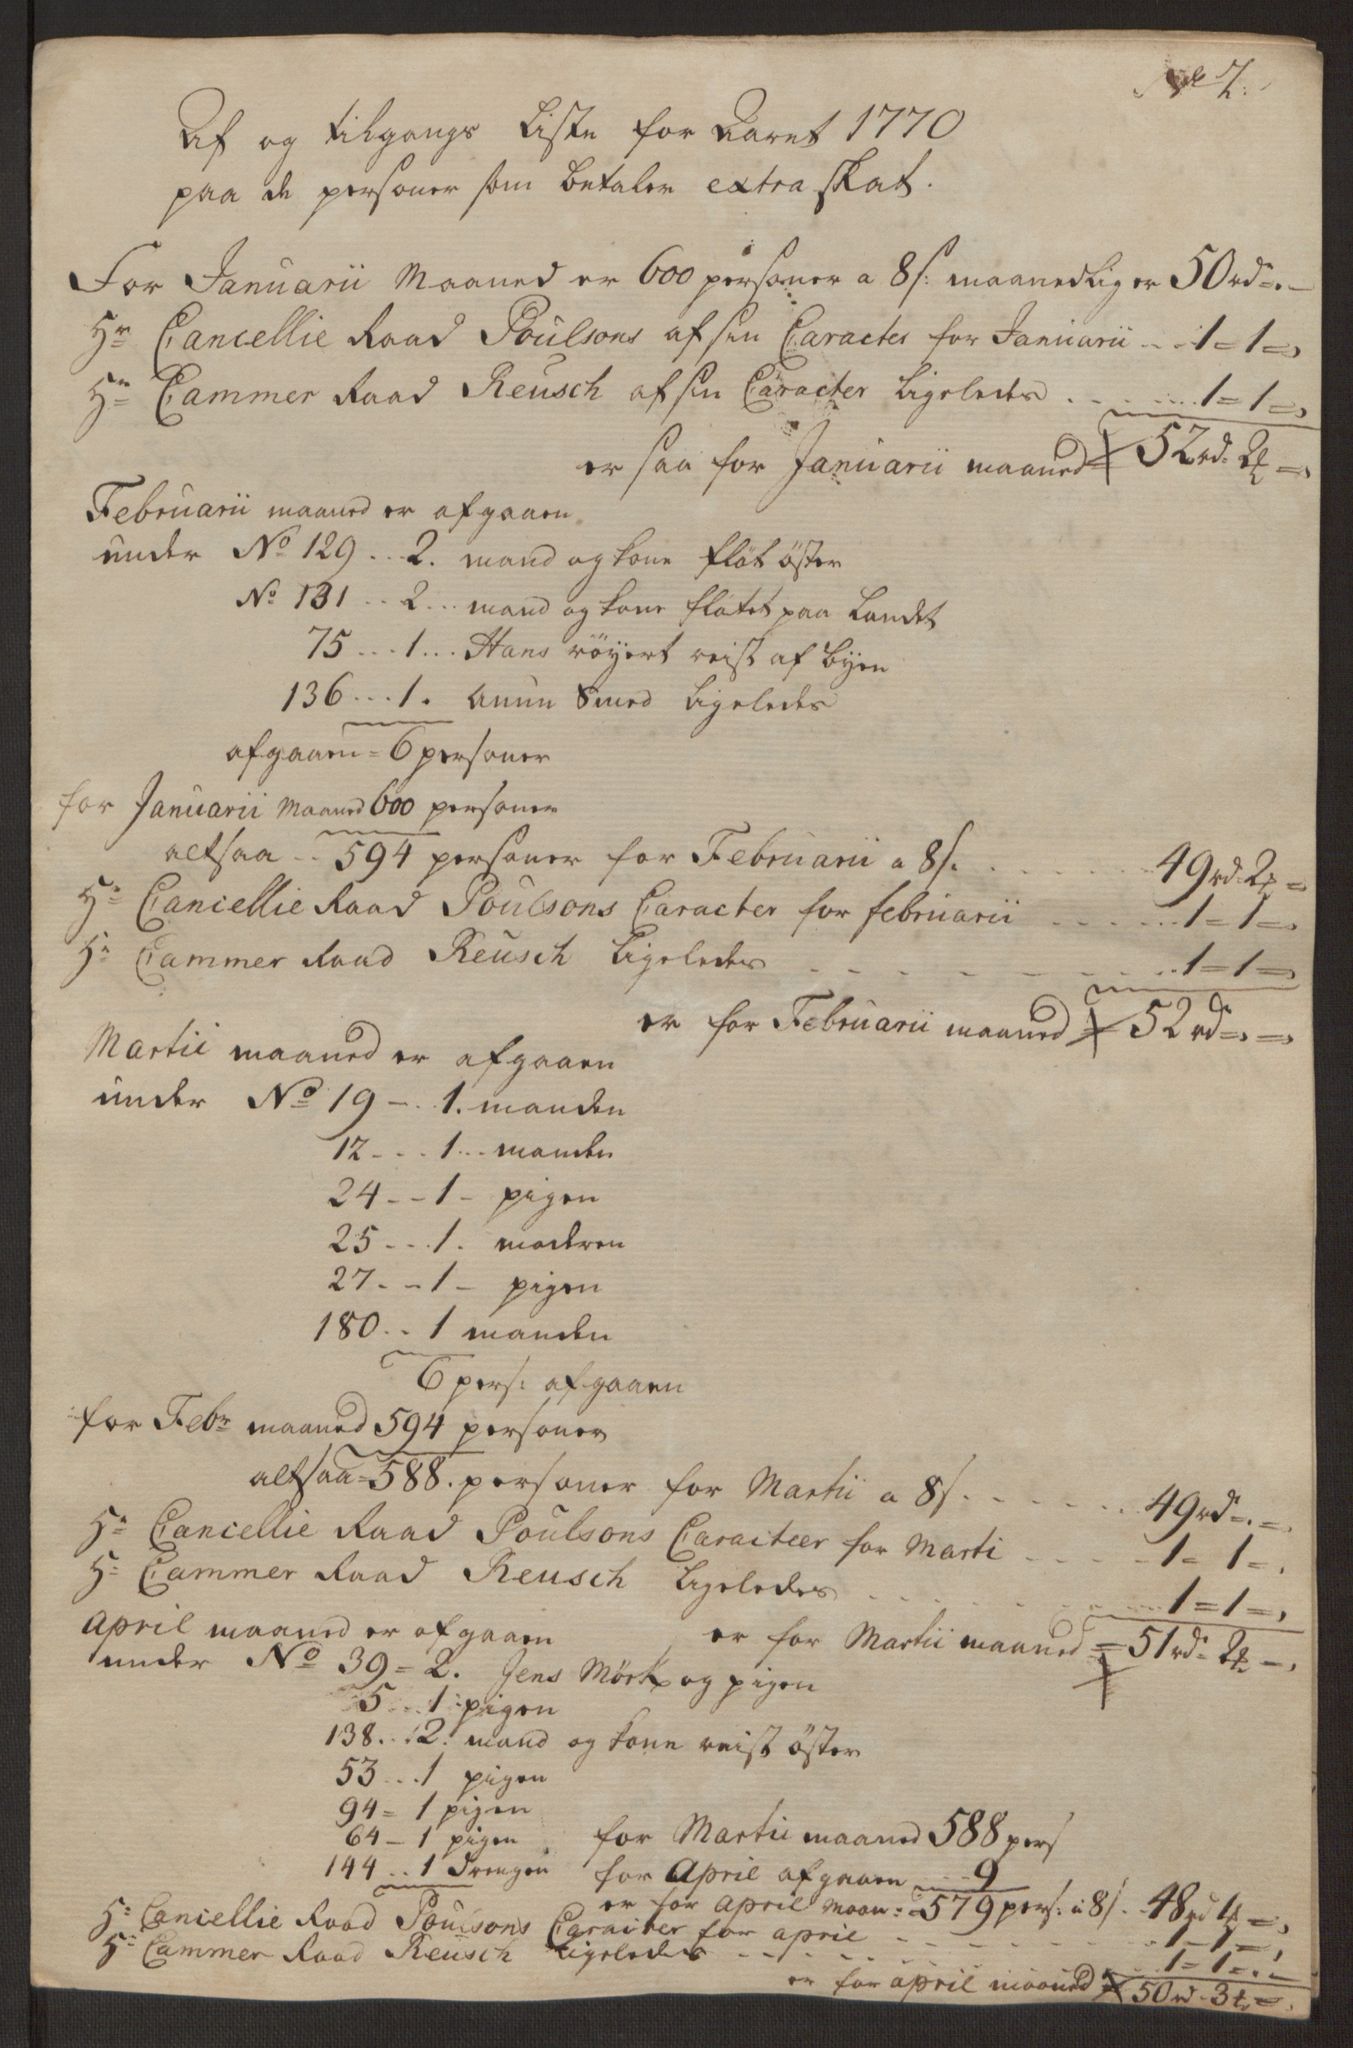 No 7.
Af og tilgangs Liste for Aaret 1770
paa de personer som betaler extra skat.
For Januarii Maaned er 600 personer a 8 s: maanedlig er 50 rd - . -
Hr Cancellie Raad Poulsons af sin Caracter for Januarii .. 1 = 1 = ,
Hr Cammer Raad Reusch af sin Caracter ligeledes . . . . 1 = 1 = ,
er saa for Januarii maaned = 52 rd. 2 - ,
Februarii maaned er afgaaen
under No 129 .. 2. mand og kone fløt öster
No 131 .. 2 ... mand og kone fløtet paa Landet
75 ... 1 ... Hans röyert reist af byen
136 ... 1. Smed ligeledes
afgaaen = 6 personer
for Januarii Maaned 600 personer
altsaa .. 594 personer for Februarii a 8 s. . . . . . 49 rd. 2 =
Hr Cancellie Raad Poulsons Caracter for februarii . . . . 1 = 1 = ,
Hr Cammer Raad Reusch ligeledes . . . . . . 1 = 1 = ,
er for Februarii maaned = 52 rd = , = ,
Martii maaned er afgaaen
under No 19 - . 1. manden
12 - . . 1 ... manden
24 - - 1 - pigen
25 - . . 1. moderen
27 . - 1 - pigen
180 .. 1 manden
6 pers: afgaaen
for Febr maaned 594 personer
altsaa = 588. personer for Martii a 8 s. . . . . . 49 rd = . = ,
Hr Cancellie Raad Poulsons Caracteer for Marti . . . . 1 = 1 = .
Hr Cammer Raad Reusch ligeledes . . . . . . 1 = 1 = ,
er for Martii maaned = 51 rd = 2 - ,
April maaned er afgaaen
under No 39 = 2. Jens Mörk og pigen
5 ... 1 pigen
138 .. 2. mand og kone reist öster
53 ... 1 pigen
94 = 1 pigen
64 - 1 pigen
144 ... 1 Drengen
for Martii maaned 588 pers
for April afgaaen .. 9
er for april Maan: = 579 pers: a 8 s. 48 rd 1 = ,
Hr Cancellie Raad Poulsons Caracter for april . . . . 1 - 1 = ,
Hr Cammer Raad Reusch ligeledes . . . . . . 1 = 1 = . -
er for april maaned = 50 rd - 3 = .